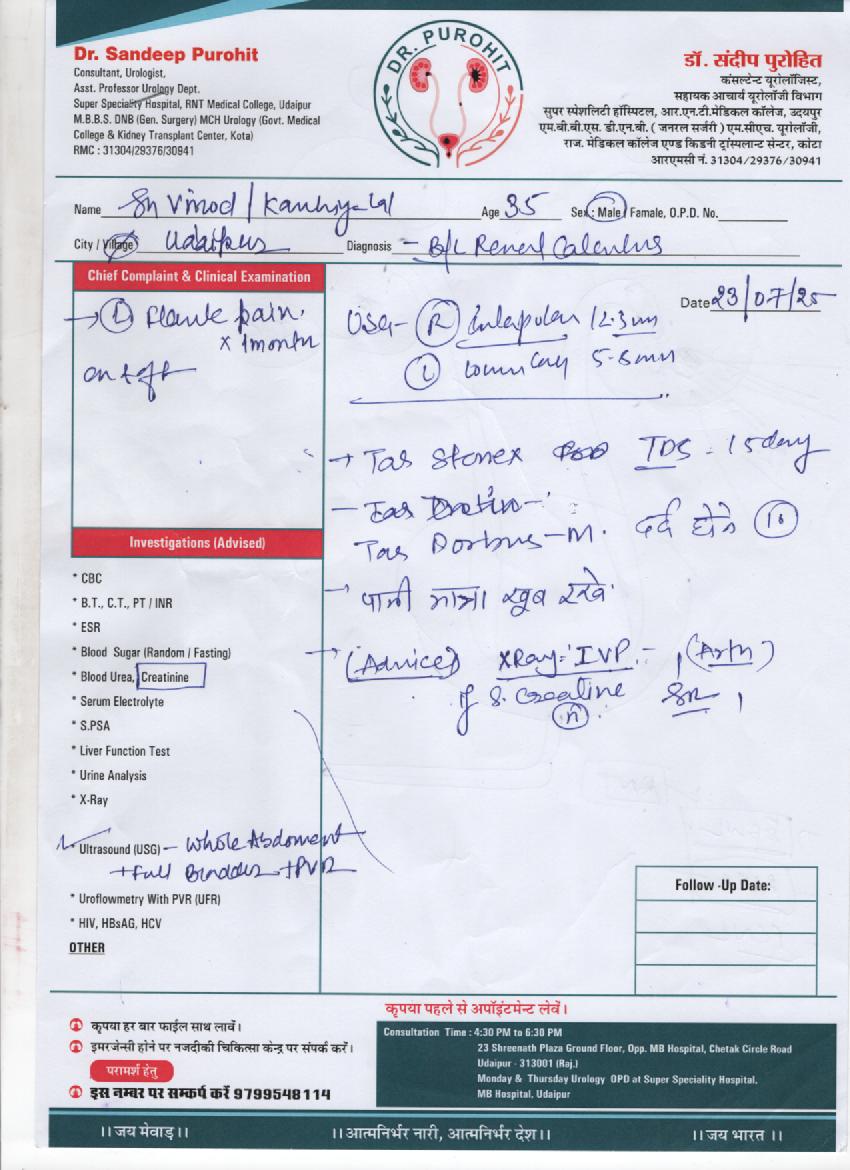 Dr. Sandeep Purohit
Consultant, Urologist,
Asst. Professor Urology Dept.
Super Speciality Hospital, RNT Medical College, Udaipur
M.B.B.S. DNB (Gen. Surgery) MCH Urology (Govt. Medical
College & Kidney Transplant Center, Kota)
RMC : 31304/29376/30941
DR. PUROHIT
डॉ. संदीप पुरोहित
कंसल्टेन्ट यूरोलॉजिस्ट,
सहायक आचार्य यूरोलॉजी विभाग
सुपर स्पेशलिटी हॉस्पिटल, आर.एन.टी.मेडिकल कॉलेज, उदयपुर
एम.बी.बी.एस. डी.एन.बी. ( जनरल सर्जरी ) एम.सीएच. यूरोलॉजी,
राज. मेडिकल कॉलेज एण्ड किडनी ट्रांस्प्लान्ट सेन्टर, कोटा
आरएमसी नं. 31304/29376/30941
Name Sh Vinod / Kanhiya lal Age 35 Sex : Male / Famale, O.P.D. No.
City / Village Udaipur Diagnosis - B/L Renal Calculus
Chief Complaint & Clinical Examination
Date 23/07/25
→ (L) Flank pain.
x 1 month
on & off
USG - (R) Interpolar 12.3mm
(L) 5-8mm
→ Tab Stonex TDS - 15 day
Tab - M. दर्द होने 10
→ पानी मात्रा खूब रखे
→ (Advice) X Ray = IVP -
if S. Creatine
(n)
Investigations (Advised)
* CBC
* B.T., C.T., PT / INR
* ESR
* Blood Sugar (Random / Fasting)
* Blood Urea, Creatinine
* Serum Electrolyte
* S.PSA
* Liver Function Test
* Urine Analysis
* X-Ray
* Ultrasound (USG) - Whole Abdoment
+ Full Bladder + PVR
* Uroflowmetry With PVR (UFR)
* HIV, HBsAG, HCV
OTHER
Follow -Up Date:
कृपया पहले से अपॉइंटमेन्ट लेवें।
कृपया हर बार फाईल साथ लावें।
इमरजेन्सी होने पर नजदीकी चिकित्सा केन्द्र पर संपर्क करें।
परामर्श हेतु
इस नम्बर पर सम्पर्क करें 9799548114
Consultation Time : 4:30 PM to 6:30 PM
23 Shreenath Plaza Ground Floor, Opp. MB Hospital, Chetak Circle Road
Udaipur - 313001 (Raj.)
Monday & Thursday Urology OPD at Super Speciality Hospital,
MB Hospital, Udaipur
।। जय मेवाड़।। ।।आत्मनिर्भर नारी, आत्मनिर्भर देश।। ।। जय भारत ।।